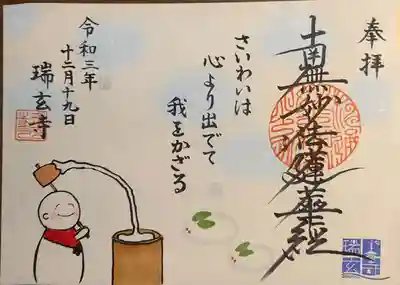 奉拝
南無妙法蓮華経
さいわいは
心より出でて
我をかざる
令和三年
十二月十九日
瑞玄寺